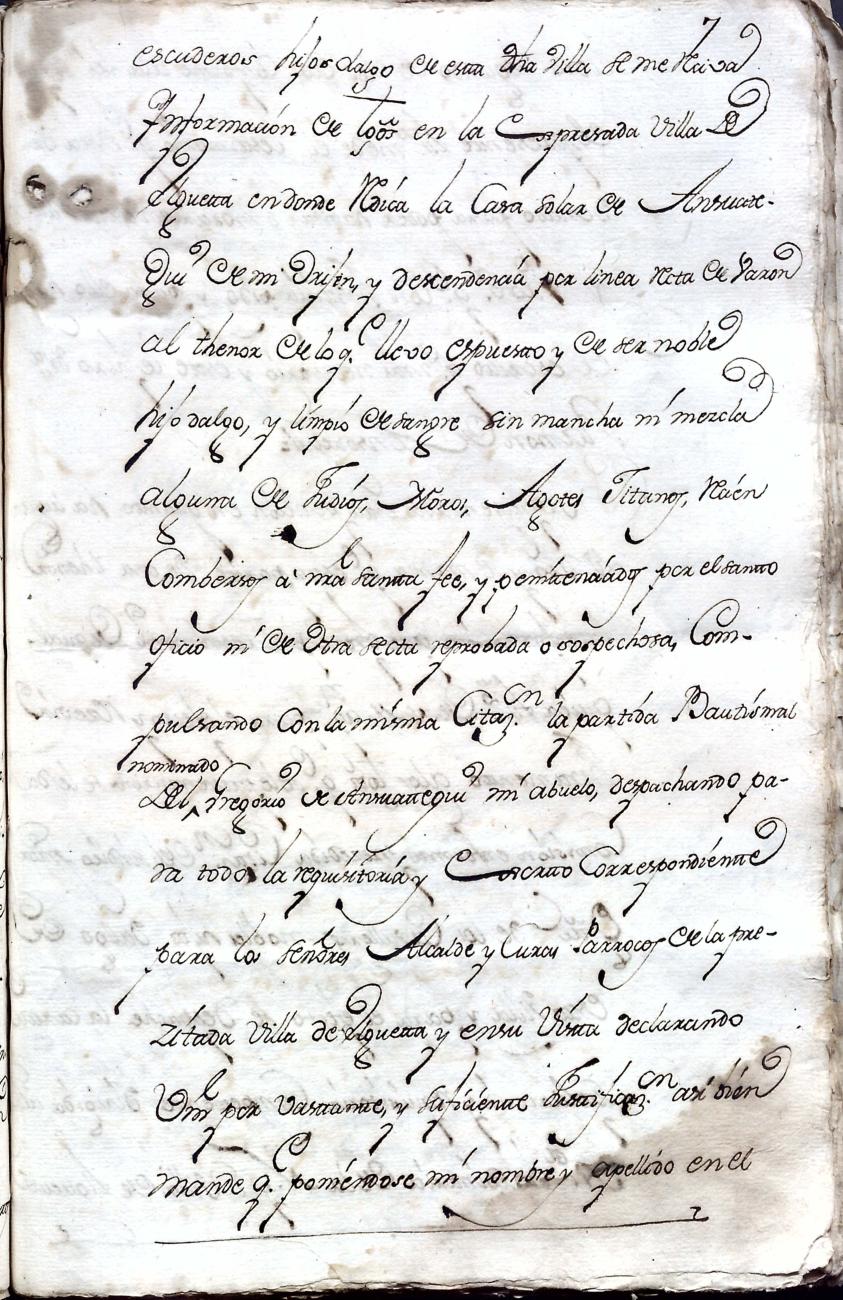 7
escuderos hijosdalgo de esta dha Villa se me reciva
Informacion de tgos en la Expresada Villa de
Elgueta en donde radica la Casa solar de Ansuate-
gui de mi Orijen, y descendencia por linea recta de Varon
al thenor de lo q.e llevo espuesto y de ser noble
hijo dalgo, y limpio de sangre sin mancha ni mezcla
alguna de Judios, Moros, Agotes Jitanos, Recien
Combersos a nra santta fee, y penitenciados por el santto
Oficio ni de Otra secta reprobada o sospechosa, Com-
pulsando Con la misma Citaz.on la partida Bautismal
nominado
Del Gregorio de Ansuattegui mi abuelo, despachando pa-
ra todo la requisitoria y Exortto Correspondientte
para los señores Alcalde y Curas Parrocos de la pre-
zitada Villa de Elguetta y en su Vistta declarando
Vm por vasttante, y suficientte Justificaz.on asi bien
mande q.e poniendose mi nombre y apellido en el